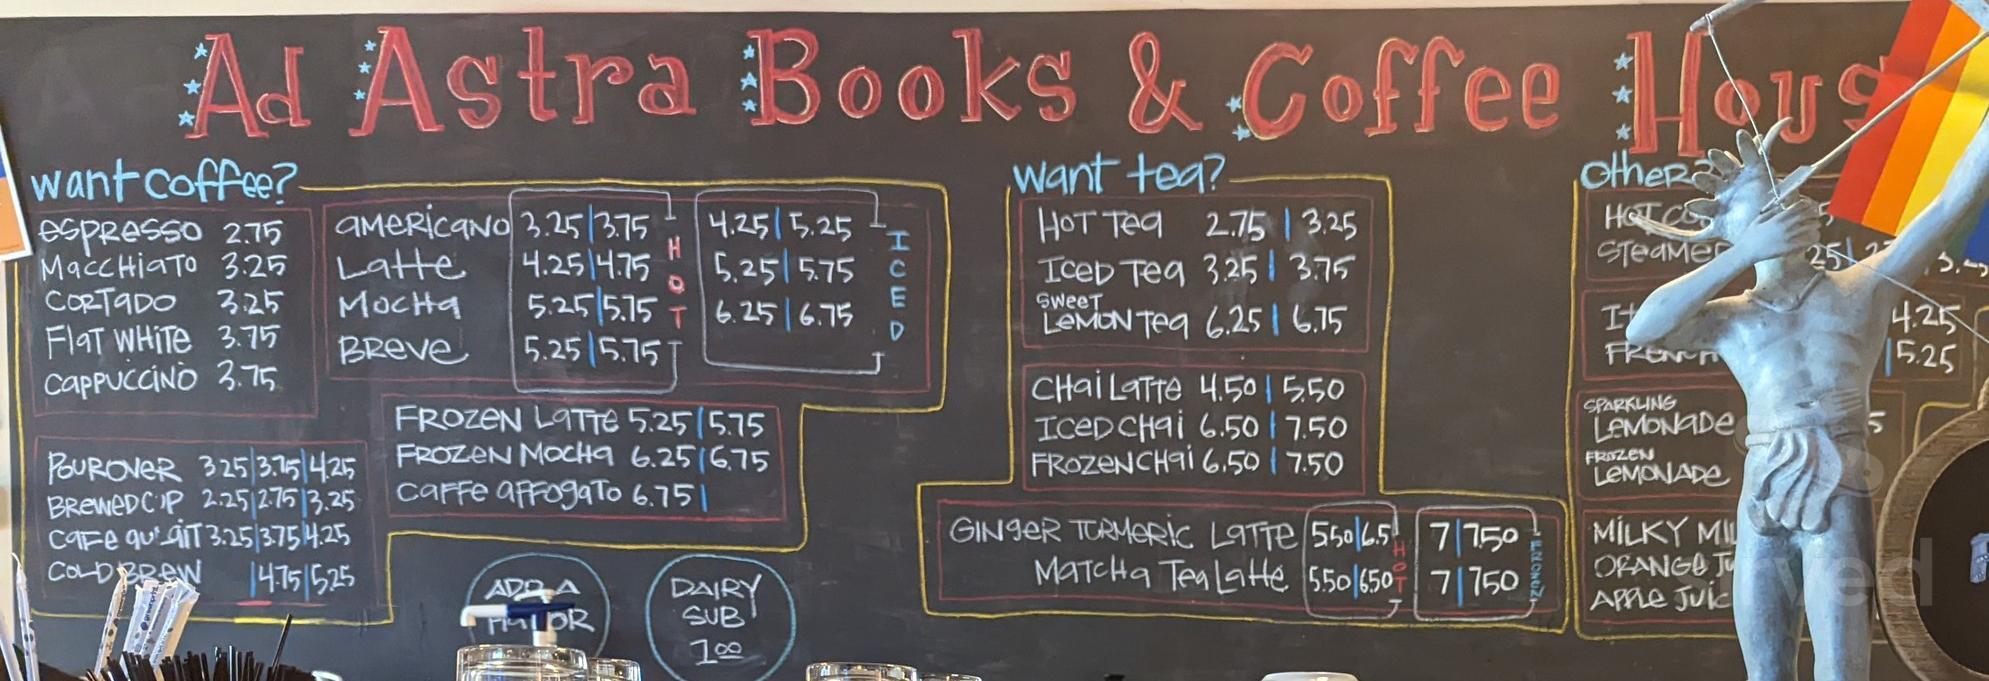 Ad Astra Books & Coffee Hous
want coffee?
espresso 2.75
Macchiato 3.25
Cortado 3.25
Flat White 3.75
Cappuccino 3.75
americano 3.25|3.75 4.25|5.25
Latte 4.25|4.75 5.25|5.75
Mocha 5.25|5.75 6.25|6.75
Breve 5.25|5.75
HOT
ICED
Pourover 3.25|3.75|4.25
Brewed Cup 2.25|2.75|3.25
Cafe au lait 3.25|3.75|4.25
Cold Brew |4.75|5.25
Frozen Latte 5.25|5.75
Frozen Mocha 6.25|6.75
Caffe affogato 6.75|
ADD A
DAIRY
SUB
1.00
want tea?
Hot Tea 2.75|3.25
Iced Tea 3.25|3.75
Sweet
Lemon Tea 6.25|6.75
Chai Latte 4.50|5.50
Iced Chai 6.50|7.50
Frozen Chai 6.50|7.50
Ginger Turmeric Latte 5.50|6.5 7|7.50
Matcha Tea Latte 5.50|6.50 7|7.50
HOT
FROZEN
other?
Hot
Steamer
4.25
|5.25
Sparkling
Lemonade
Frozen
Lemonade
Milky
Orange
Apple Juic